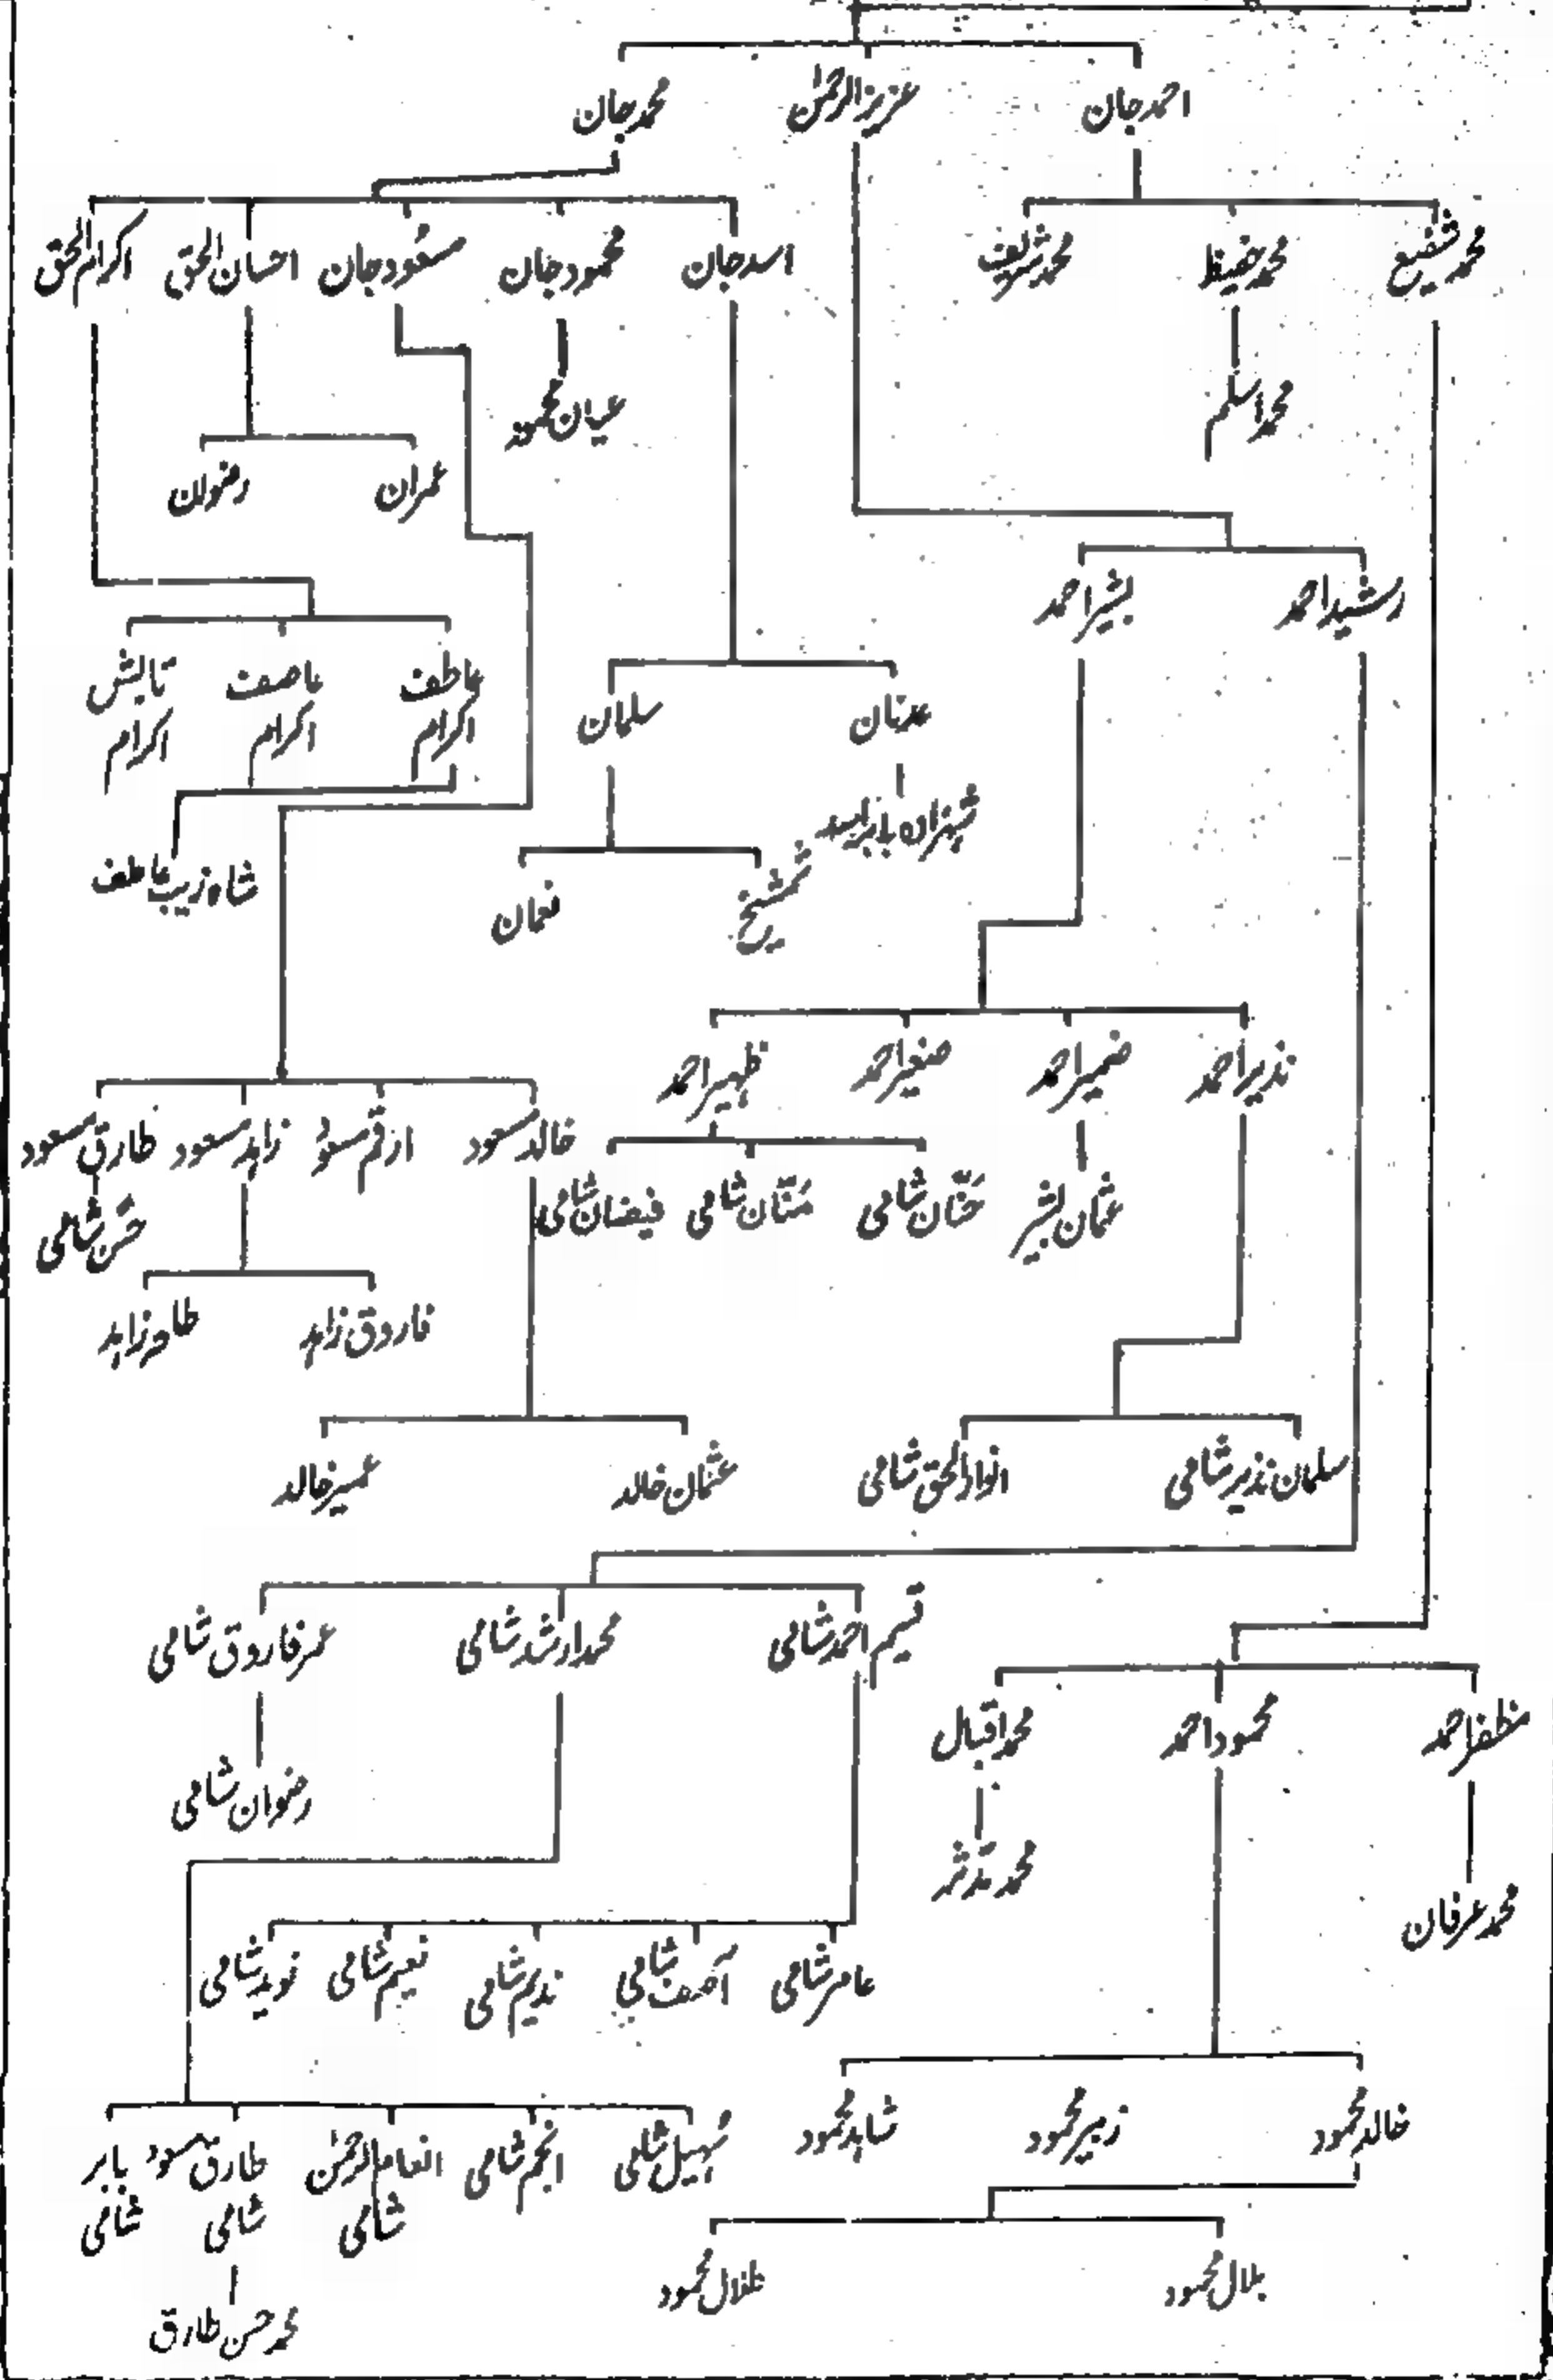 احمد جان
عزیز الرحمٰن
محمد جان
محمد شفیع
محمد حفیظ
محمد شریف
اسد جان
محمود جان
مسعود جان
احسان الحق
اکرام الحق
محمد اسلم
عیان محمود
عمران
رضوان
رشید احمد
بشیر احمد
عاطف اکرام
عاصف اکرام
تابش اکرام
عدنان
سلمان
شاہ زیب عاطف
نعمان
نذیر احمد
ضمیر احمد
صغیر احمد
ظہیر احمد
خالد مسعود
ارقم مسعود
زاہد مسعود
طارق مسعود
حنّان شامی
منّان شامی
فیضان شامی
عثمان بشیر
حسن شامی
فاروق زاہد
طاہر زاہد
سلمان نذیر شامی
انوار الحق شامی
عثمان خالد
عمیر خالد
قسیم احمد شامی
محمد ارشد شامی
عمر فاروق شامی
مظفر احمد
محمود احمد
محمد اقبال
رضوان شامی
محمد مدثر
محمد عرفان
عامر شامی
آصف شامی
ندیم شامی
نعیم شامی
نوید شامی
خالد محمود
زبیر محمود
شاہد محمود
سہیل شامی
انجم شامی
انعام الرحمٰن شامی
طارق مسعود شامی
بابر شامی
بلال محمود
طلال محمود
محمد حسن طارق